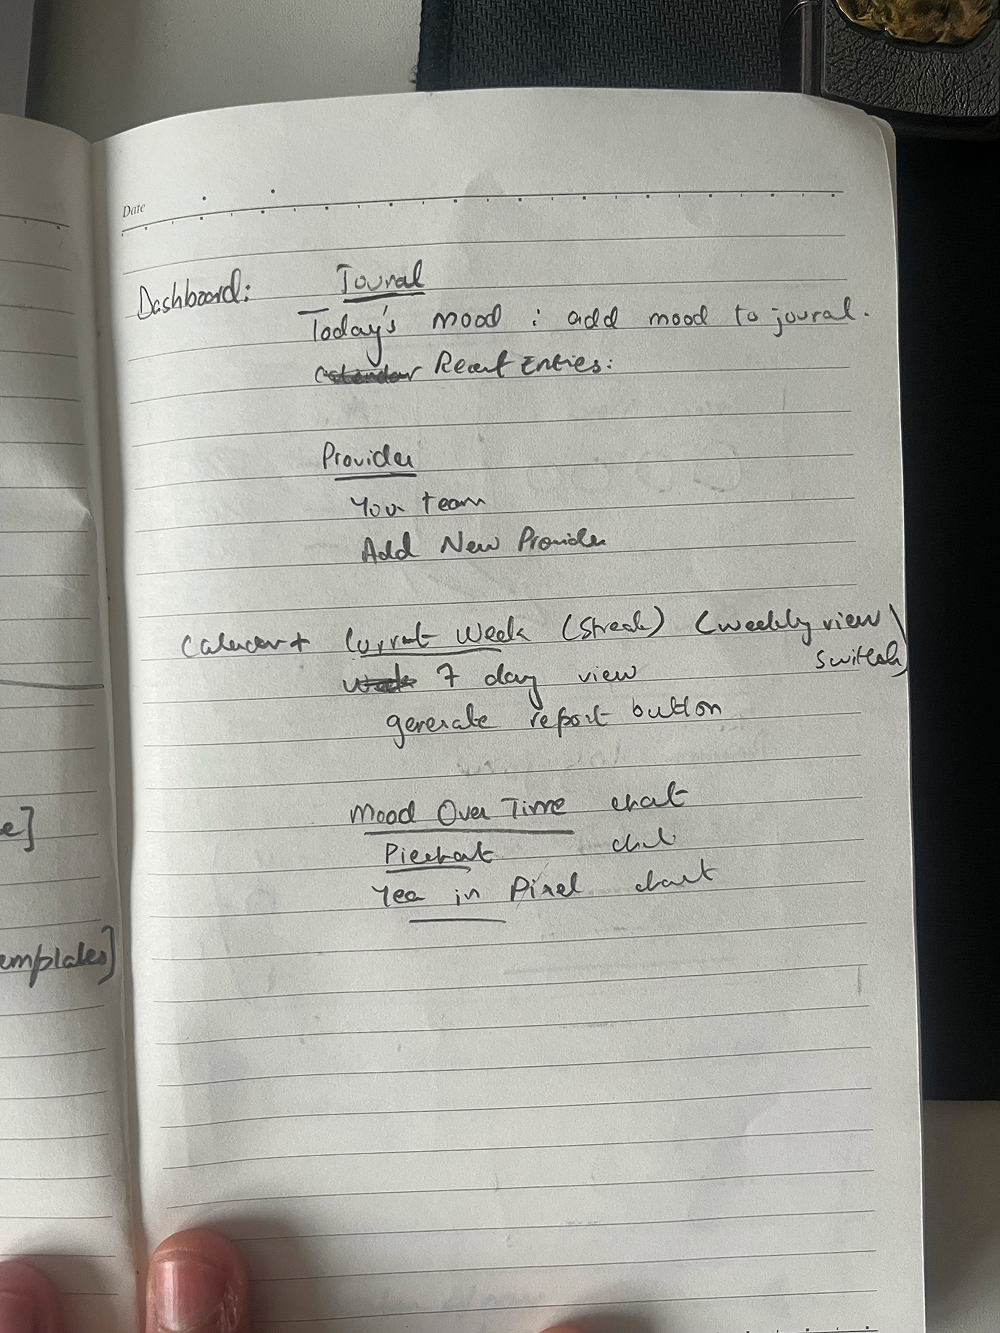 Date
Dashboard: Joural
Today's mood : add mood to joural.
Recent Entries:
Provider
Your team
Add New Provider
Current Week (Streak) (weekly view
switch)
7 day view
generate report button
Mood Over Time chart
Piechart
Year in Pixel chart
e]
emplates]